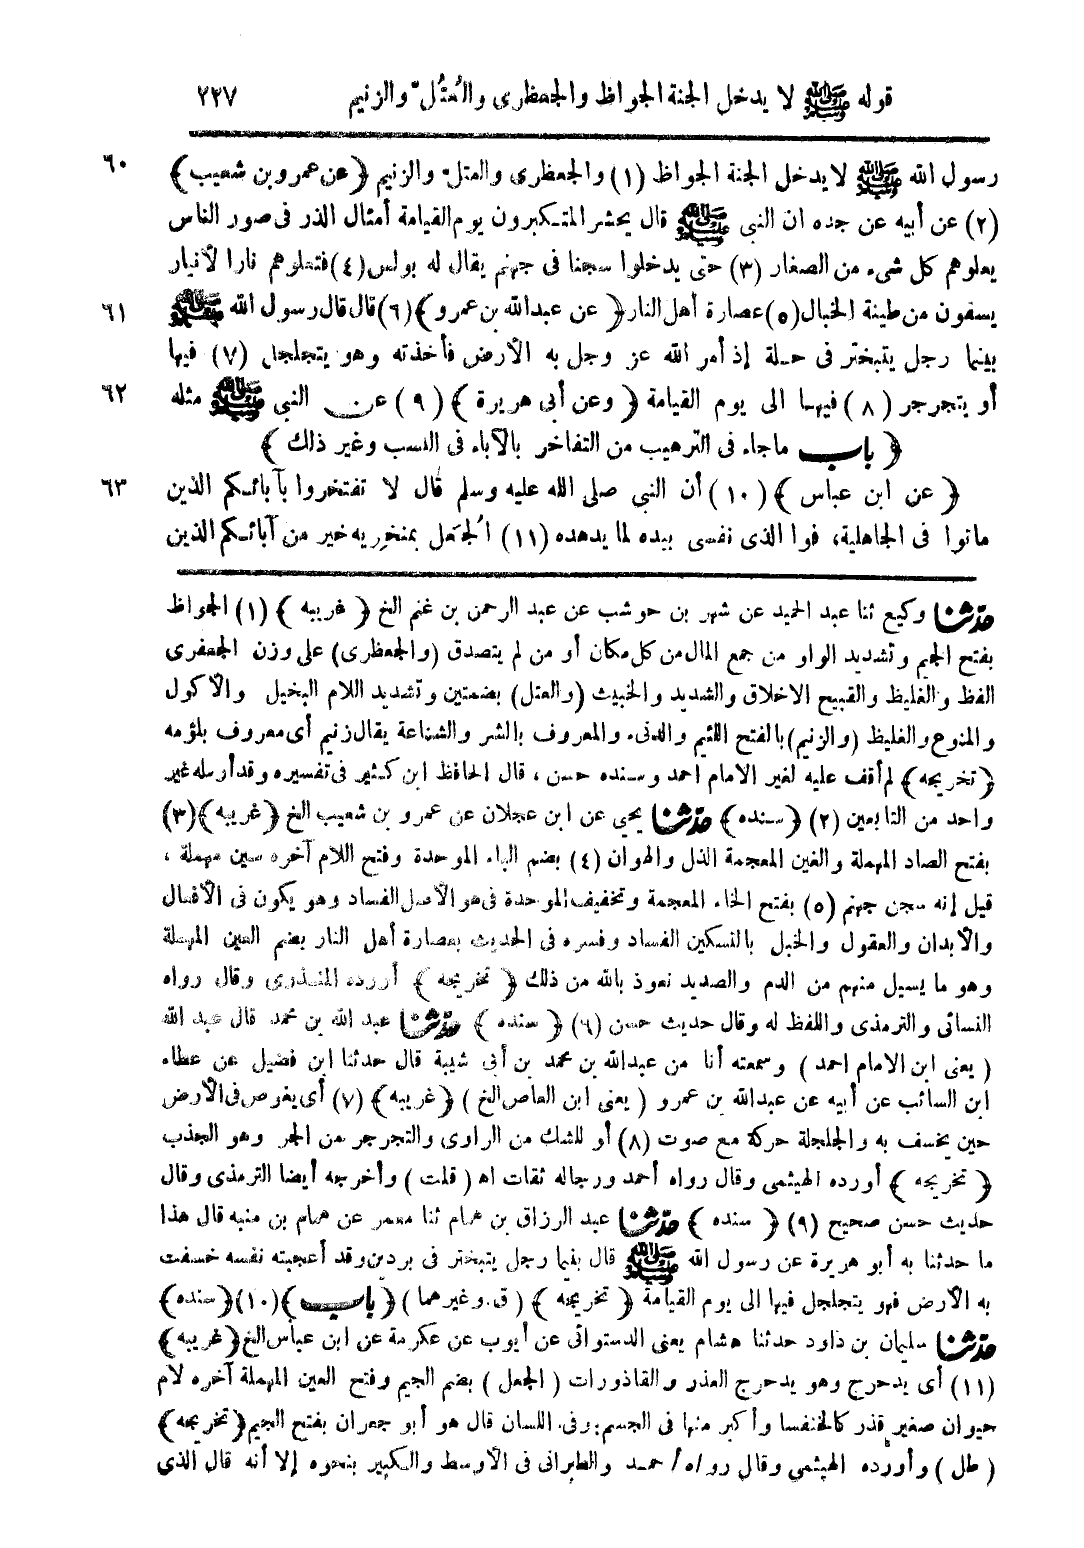 قوله ﷺ لا يدخل الجنة الجواظ والجعظرى والعُتُل والزنيم ٢٢٧
رسول الله ﷺ لا يدخل الجنة الجواظ (١) والجعظرى والعتل والزنيم ﴿ عن عمرو بن شعيب ﴾ ٦٠
(٢) عن أبيه عن جده ان النبى ﷺ قال يحشر المتكبرون يوم القيامة أمثال الذر فى صور الناس
يعلوهم كل شىء من الصغار (٣) حتى يدخلوا سجنا فى جهنم يقال له بولس (٤) فتعلوهم نارا لأنيار
يسقون من طينة الخبال (٥) عصارة أهل النار ﴿ عن عبدالله بن عمرو ﴾ (٦) قال قال رسول الله ﷺ ٦١
بينما رجل يتبختر فى حلة إذ أمر الله عز وجل به الأرض فأخذته وهو يتجلجل (٧) فيها
أو يتجرجر (٨) فيها الى يوم القيامة ﴿ وعن أبى هريرة ﴾ (٩) عن النبى ﷺ مثله ٦٢
﴿ باب ماجاء فى الترهيب من التفاخر بالآباء فى النسب وغير ذلك ﴾
﴿ عن ابن عباس ﴾ (١٠) أن النبى صلى الله عليه وسلم قال لا تفتخروا بآبائكم الذين ٦٣
ماتوا فى الجاهلية، فوا الذى نفسى بيده لما يدهده (١١) الجُعَل بمنخريه خير من آبائكم الذين
حدّثنا وكيع ثنا عبد الحميد عن شهر بن حوشب عن عبد الرحمن بن غنم الخ ﴿ غريبه ﴾ (١) الجواظ
بفتح الجيم وتشديد الواو من جمع المال من كل مكان أو من لم يتصدق (والجعظرى) على وزن الجعفرى
الفظ والغليظ والقبيح الاخلاق والشديد والخبيث (والعتل) بضمتين وتشديد اللام البخيل والأكول
والمنوع والغليظ (والزنيم) بالفتح اللئيم والدنىء والمعروف بالشر والشناعة يقال زنيم أى معروف بلؤمه
﴿تخريجه﴾ لم أقف عليه لغير الامام احمد وسنده حسن، قال الحافظ ابن كثير فى تفسيره وقد أرسله غير
واحد من التابعين (٢) ﴿سنده﴾ حدّثنا يحيى عن ابن عجلان عن عمرو بن شعيب الخ ﴿غريبه﴾ (٣)
بفتح الصاد المهملة والغين المعجمة الذل والهوان (٤) بضم الباء الموحدة وفتح اللام آخره سين مهملة،
قيل إنه سجن جهنم (٥) بفتح الخاء المعجمة وتخفيف الموحدة فى هو الأصل الفساد وهو يكون فى الأفعال
والأبدان والعقول والخبل بالتسكين الفساد وفسره فى الحديث بعصارة أهل النار بضم العين المهملة
وهو ما يسيل منهم من الدم والصديد نعوذ بالله من ذلك ﴿ تخريجه ﴾ أورده المنذرى وقال رواه
النسائى والترمذى واللفظ له وقال حديث حسن (٦) ﴿ سنده ﴾ حدّثنا عبد الله بن محمد قال عبد الله
( يعنى ابن الامام احمد ) وسمعته أنا من عبدالله بن محمد بن أبى شيبة قال حدثنا ابن فضيل عن عطاء
ابن السائب عن أبيه عن عبدالله بن عمرو ( يعنى ابن العاص الخ ) ﴿غريبه﴾ (٧) أى يغوص فى الأرض
حين يخسف به والجلجلة حركة مع صوت (٨) أو للشك من الراوى والتجرجر من الجر وهو الجذب
﴿ تخريجه ﴾ أورده الهيثمى وقال رواه أحمد ورجاله ثقات اه ( قلت ) وأخرجه أيضا الترمذى وقال
حديث حسن صحيح (٩) ﴿ سنده ﴾ حدّثنا عبد الرزاق بن همام ثنا معمر عن همام بن منبه قال هذا
ما حدثنا به أبو هريرة عن رسول الله ﷺ قال بينما رجل يتبختر فى بردين وقد أعجبته نفسه خسفت
به الأرض فهو يتجلجل فيها الى يوم القيامة ﴿ تخريجه ﴾ ( ق. وغيرهما ) ﴿ باب ﴾ (١٠) ﴿سنده﴾
حدّثنا سليمان بن داود حدثنا هشام يعنى الدستوائى عن أيوب عن عكرمة عن ابن عباس الخ ﴿غريبه﴾
(١١) أى يدحرج وهو يدحرج العذر والقاذورات ( الجعل ) بضم الجيم وفتح العين المهملة آخره لام
حيوان صغير قذر كالخنفسا وأكبر منها فى الجسم: وفى اللسان قال هو أبو جعران بفتح الجيم ﴿تخريجه﴾
( طل ) وأورده الهيثمى وقال رواه احمد والطبرانى فى الأوسط والكبير بنحوه إلا أنه قال الذى